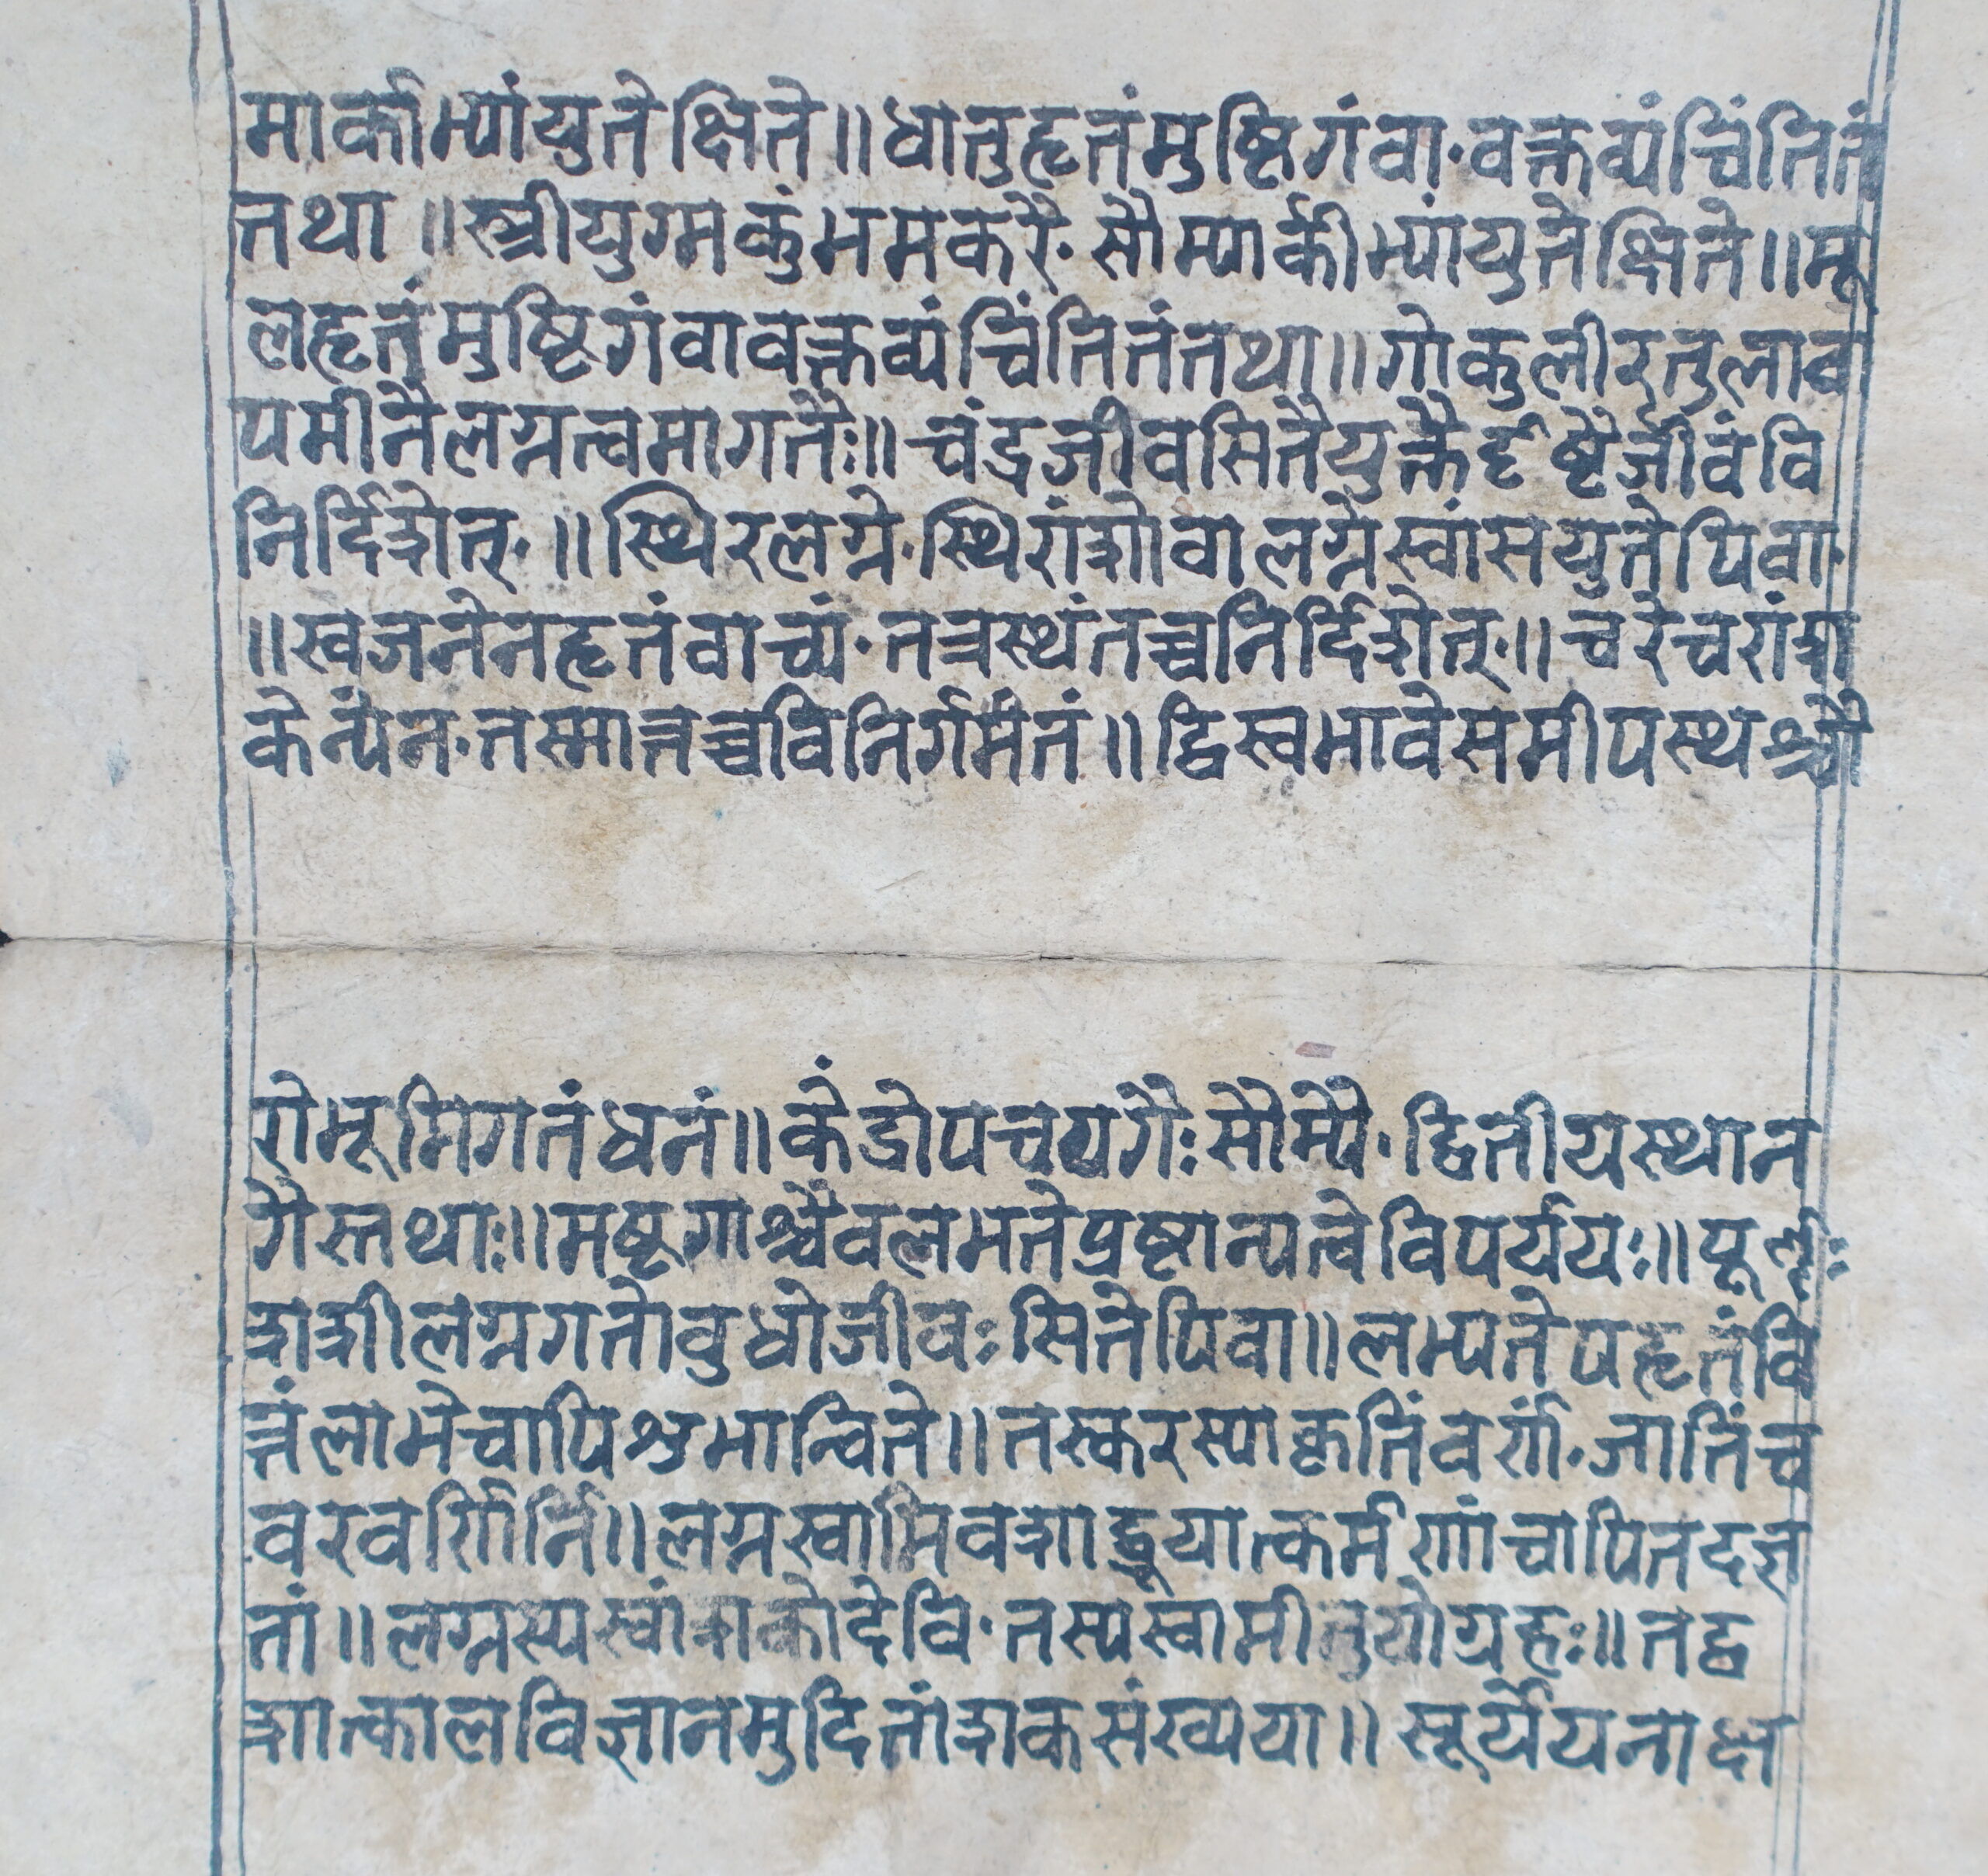 मार्काभ्यांयुतेक्षिते॥धातुहृतंमुष्टिगंवा·वक्तव्यंचिंतितं
तथा॥स्त्रीयुग्मकुंभमकरै·सौम्यार्कीभ्यांयुतेक्षिते॥मू
लहृतंमुष्टिगंवावक्तव्यंचिंतितंतथा॥गोकुलीरतुलाव
पमीनैलग्नत्वमागतैः॥चंद्रजीवसितैयुक्तैर्दृष्टैर्जीवंवि
निर्दिशेत्·॥स्थिरलग्ने·स्थिरांशोवालग्नेस्वांसयुतेपिवा·
॥स्वजनेनहृतंवाच्यं·तत्रस्थंतच्चनिर्दिशेत्·॥चरेचरांश
केन्यंन·तस्मात्तच्चविनिर्गमंतं॥द्विस्वभावेसमीपस्थश्चौ
रोभूमिगतंधनं॥केंद्रोपचयगैः सौम्यै·द्वितीयस्थान
गैस्तथाः॥मष्टगाश्चैवलभतेप्रष्टान्यत्वेविपर्ययः॥पूर्णः
शशीलग्नगतोवुधोजीवः सितेपिवा॥लभ्यतेपहृतंवि
त्तंलाभेचापिशुभान्विते॥तस्करस्याकृतिंवर्णं·जातिंच
वरवर्णिनि॥लग्नस्वामिवशाद्ब्रूयात्कर्मणांचापितदज्ञ
तां॥लग्नस्यस्वांशकोदेवि·तस्यस्वामीतुयोग्रहः॥तद्व
शात्कालविज्ञानमुदितांशकसंख्यया॥सूर्येयनाक्ष